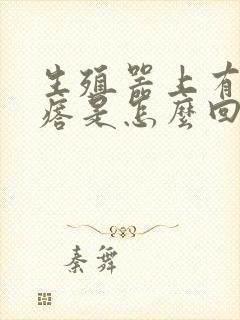 生殖器上有
痞是怎麼回
秦舞